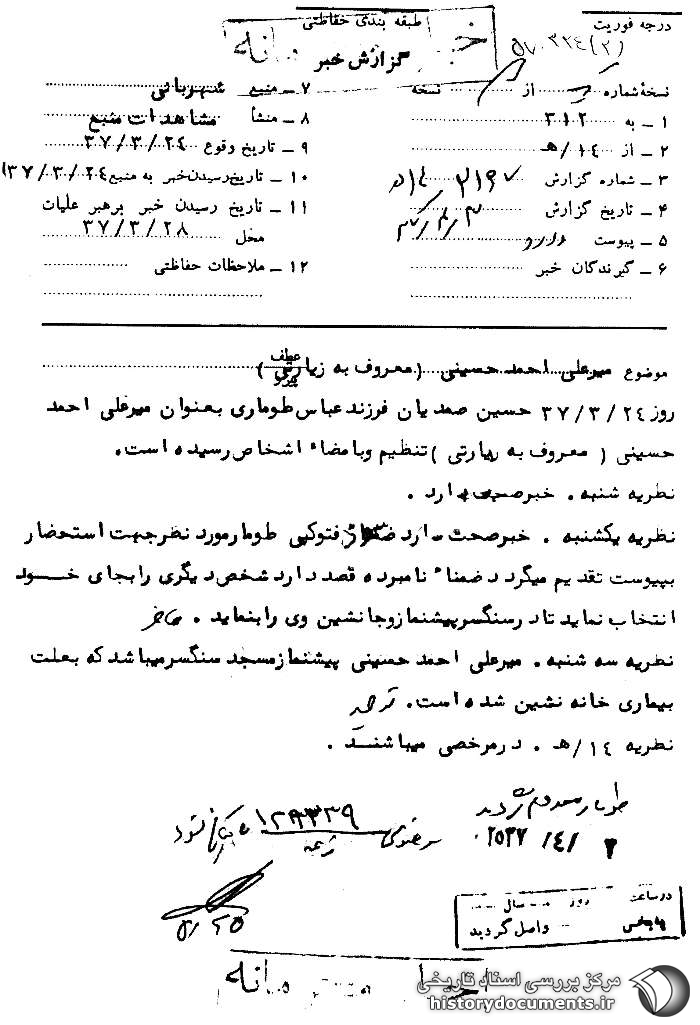 درجه فوریت
طبقه بندی حفاظتی
گزارش خبر
نسخهٔ شماره از نسخه
۱ ـ به ۳۱۲
۲ ـ از ۱۴/هـ
۳ ـ شماره گزارش
۴ ـ تاریخ گزارش
۵ ـ پیوست دارد
۶ ـ گیرندگان خبر
۷ ـ منبع شهربانی
۸ ـ منشأ مشاهدات منبع
۹ ـ تاریخ وقوع ۳۷/۳/۲۴
۱۰ ـ تاریخ رسیدن خبر به منبع ۳۷/۳/۲۴
۱۱ ـ تاریخ رسیدن خبر برهبر عملیات
محل ۳۷/۳/۲۸
۱۲ ـ ملاحظات حفاظتی
موضوع میرعلی احمد حسینی (معروف به زیارتی)
عطف
پیرو
روز ۳۷/۳/۲۴ حسین صمدیان فرزند عباس طوماری بعنوان میرعلی احمد
حسینی (معروف به زیارتی) تنظیم وبامضاء اشخاص رسیده است.
نظریه شنبه. خبرصحت دارد.
نظریه یکشنبه. خبرصحت دارد ضمناً فتوکپی طومارمورد نظرجهت استحضار
بپیوست تقدیم میگردد ضمناً نامبرده قصد دارد شخص دیگری رابجای خود
انتخاب نماید تادرسنگسرپیشنمازوجانشین وی رابنماید.
نظریه سه شنبه. میرعلی احمد حسینی پیشنمازمسجد سنگسرمیباشد که بعلت
بیماری خانه نشین شده است.
نظریه ۱۴/هـ. درمرخصی میباشند.
طومار معدوم گردید
۲۵۳۷/۴/۳
درساعت روز سال
بایگانی واصل گردید
مرکز بررسی اسناد تاریخی
historydocuments.ir